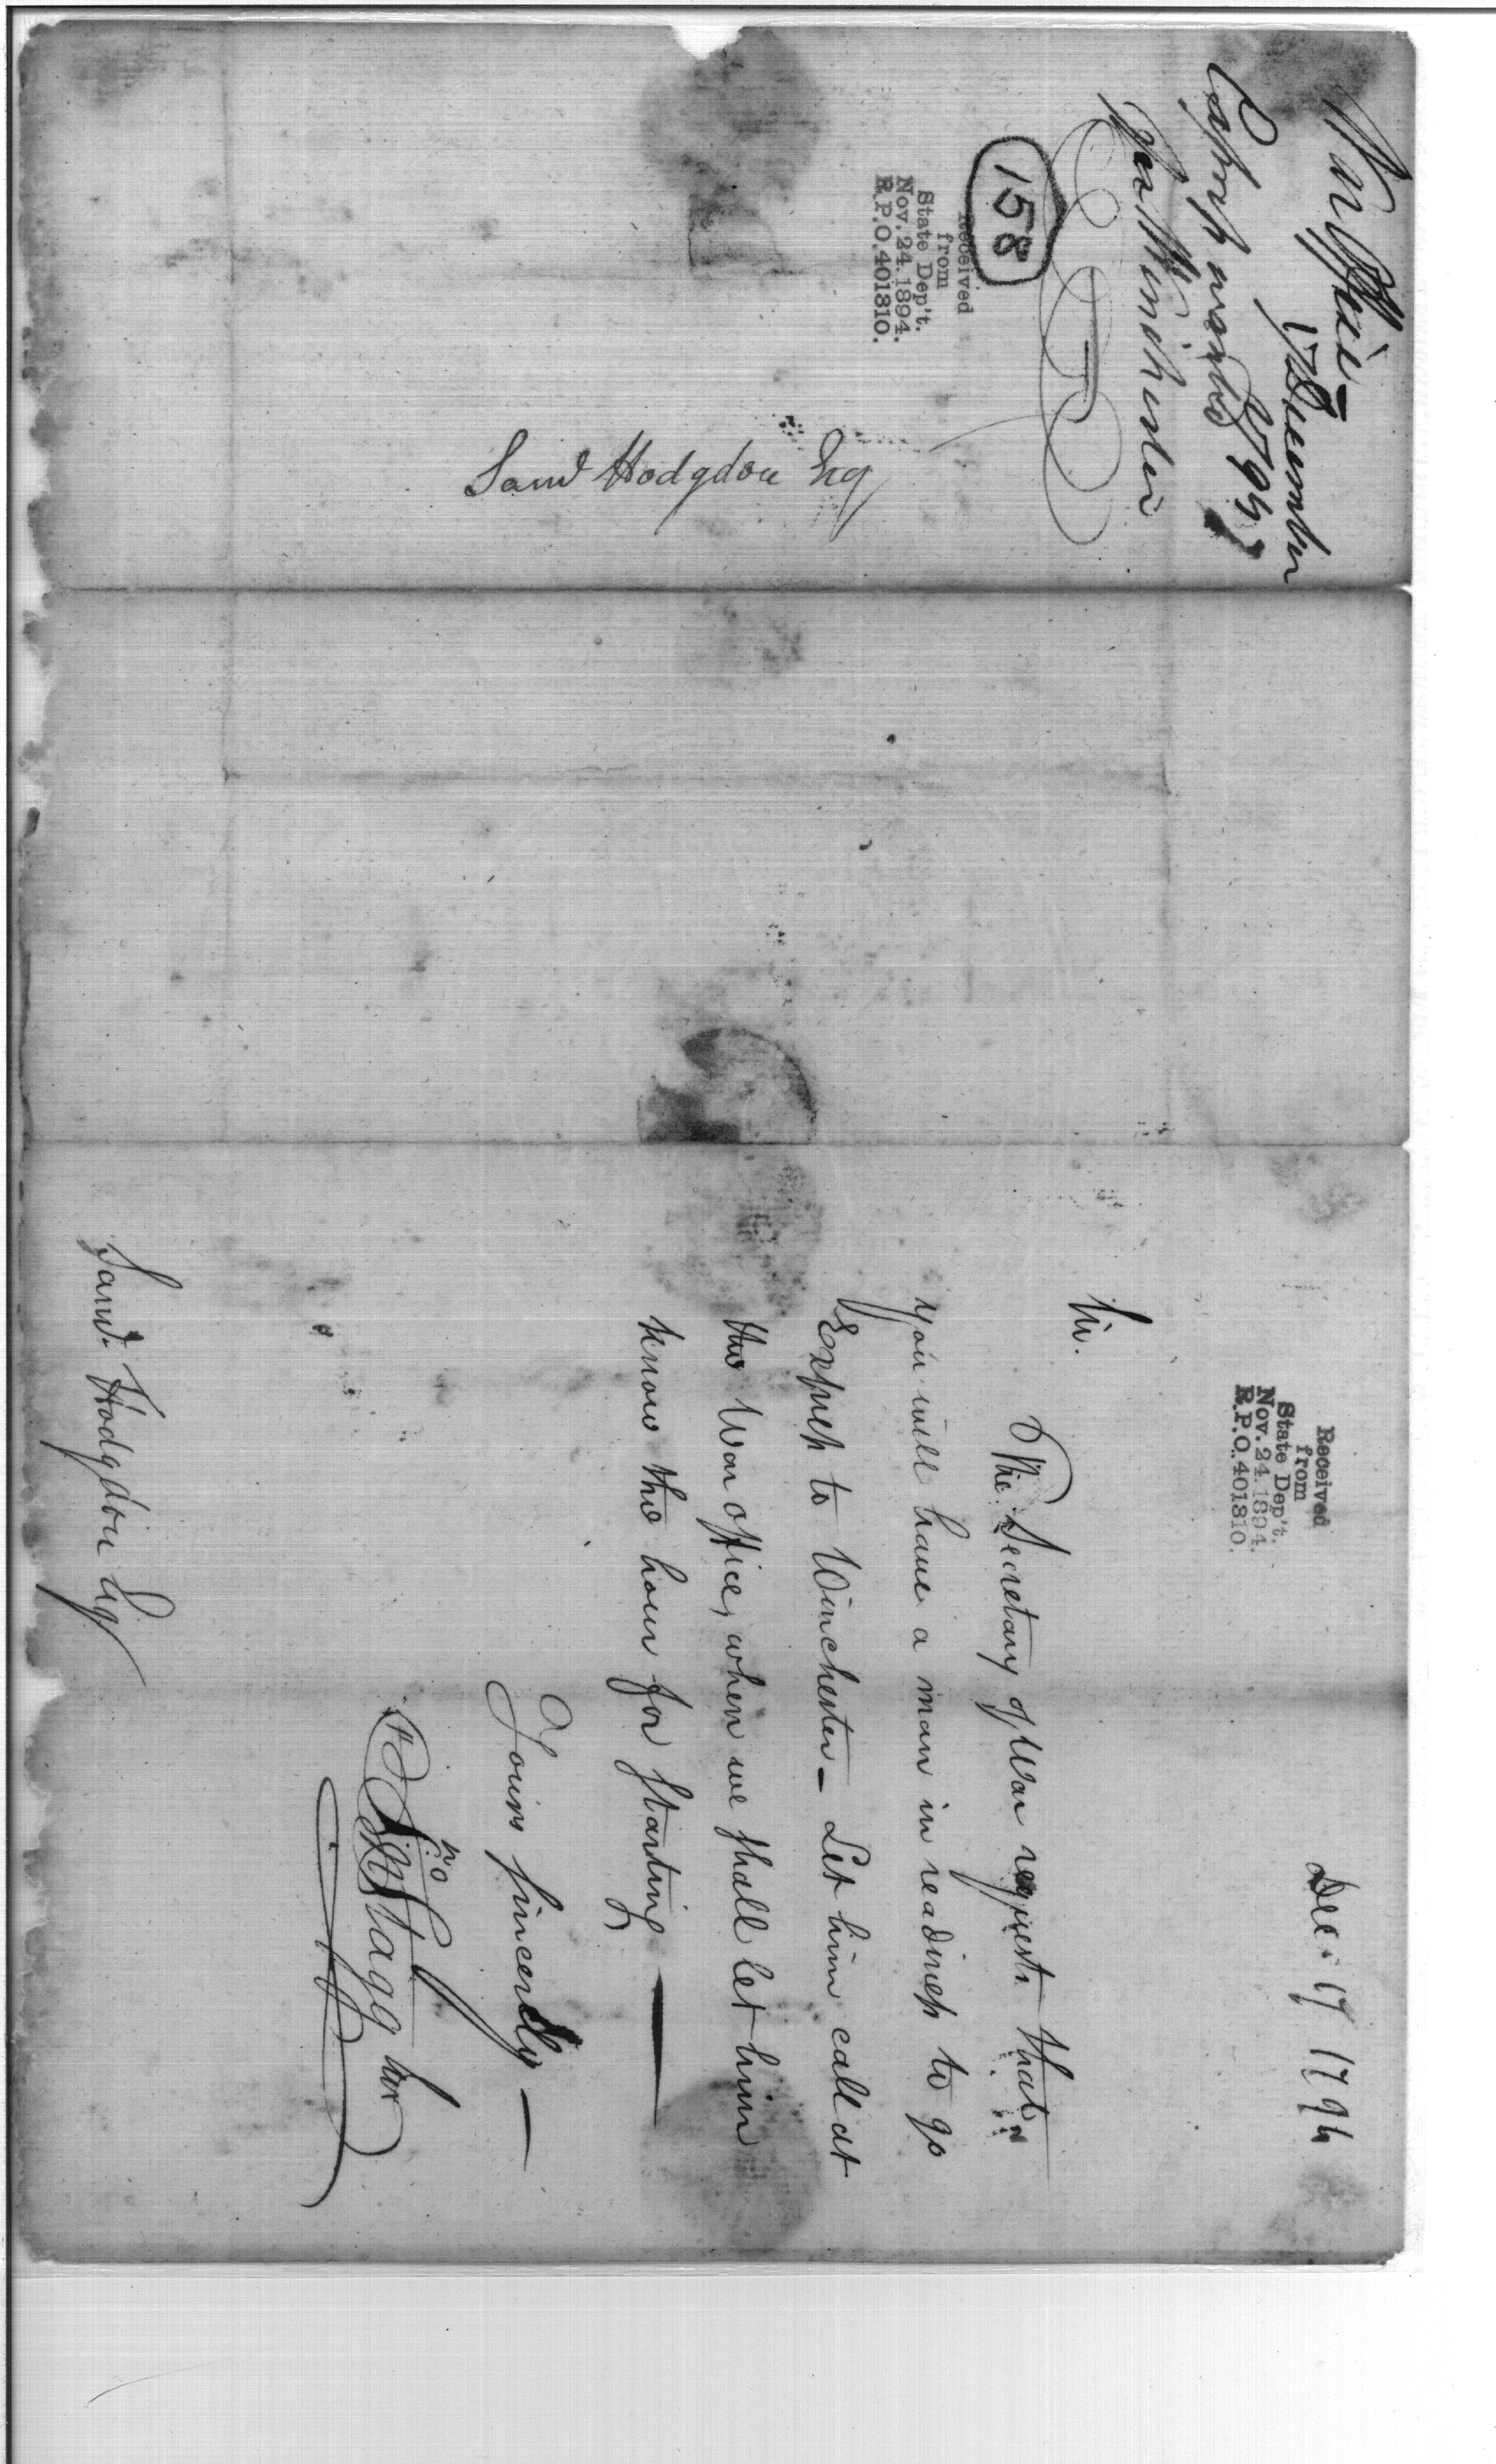 War Office
17 December
1794
Express wanted
for Winchester
158
Received
from
State Dep't.
Nov. 24. 1894.
R.P.O. 401310.
Saml Hodgdon Esq
Received
from
State Dep't.
Nov. 24. 1894.
R.P.O. 401310.
Dec: 17 1794
Sir.
The Secretary of War requests that
you will have a man in readiness to go
Express to Winchester – Let him call at
the War office, when we shall let him
know the hour for starting —
Yours sincerely —
Jno Stagg Junr
Saml. Hodgdon Esq